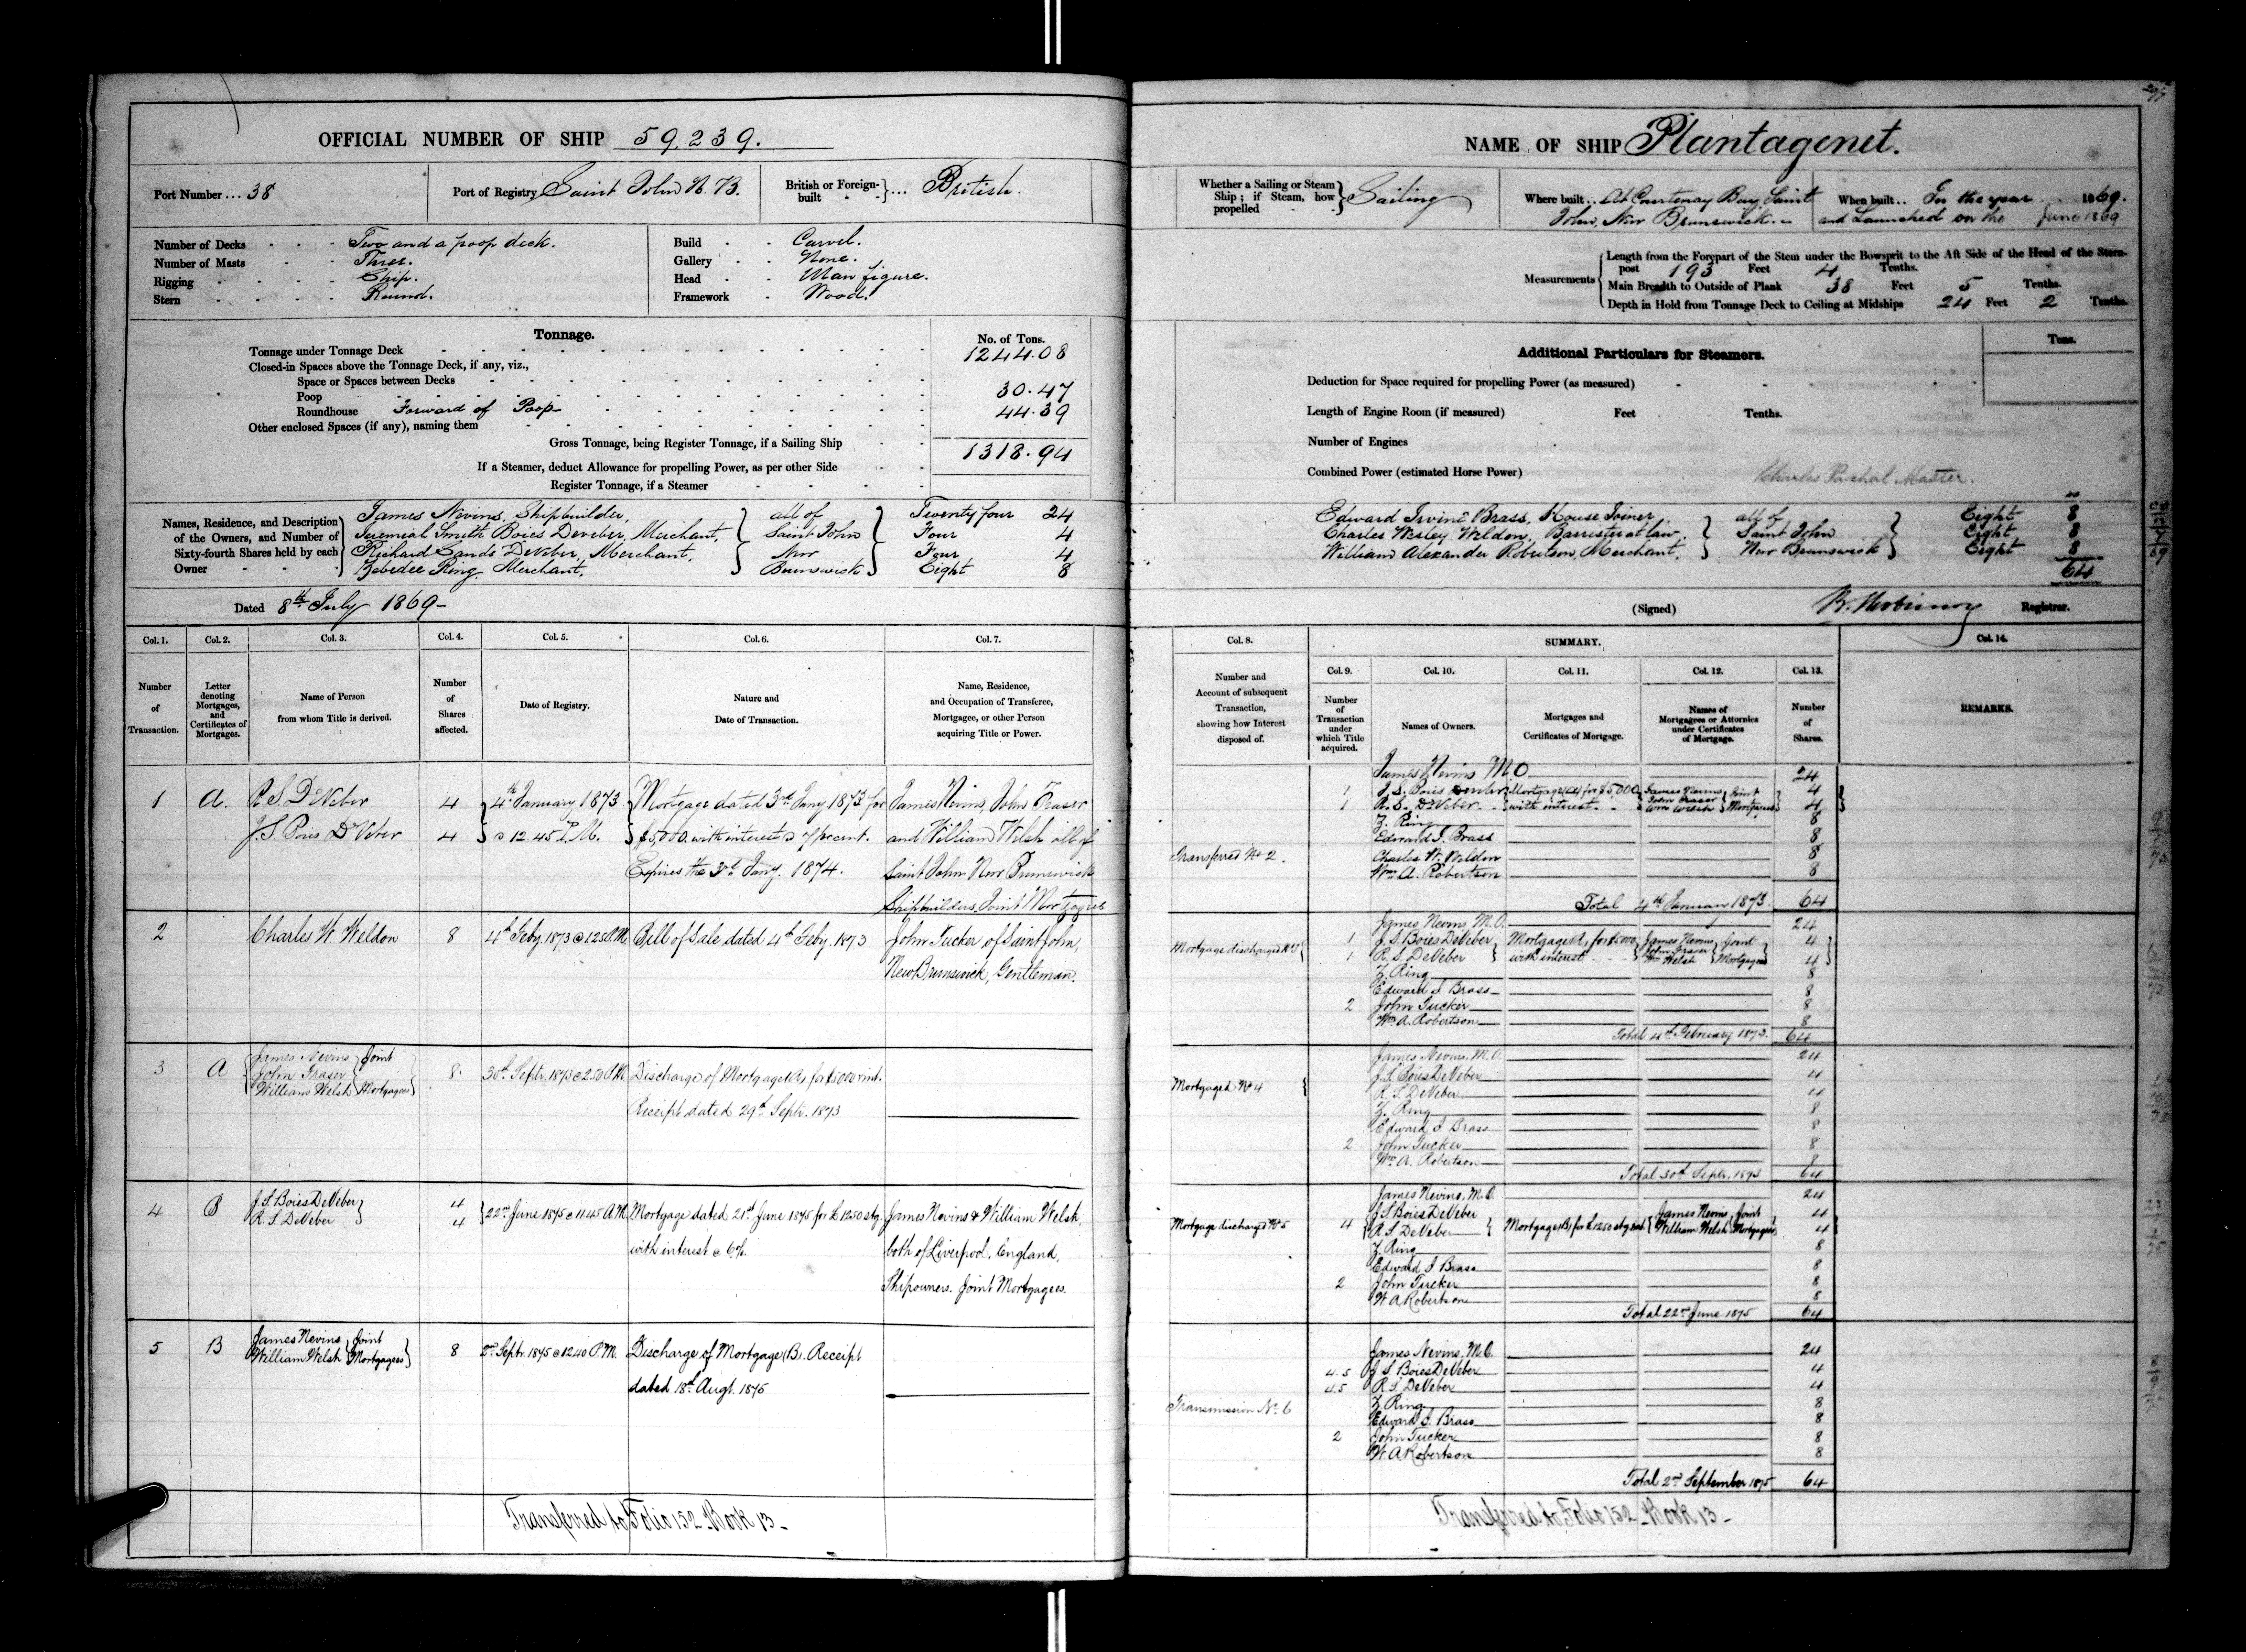 OFFICIAL NUMBER OF SHIP 59.239.
Port Number ... 38
Port of Registry Saint John N.B.
British or Foreign-built } ... British.
Number of Decks - - - Two and a poop deck.
Number of Masts - - - Three.
Rigging - - - - Ship.
Stern - - - - Round.
Build - - Carvel.
Gallery - - None.
Head - - Man figure.
Framework - Wood.
Tonnage.
No. of Tons.
Tonnage under Tonnage Deck 1244.08
Closed-in Spaces above the Tonnage Deck, if any, viz.,
Space or Spaces between Decks
Poop 30.47
Roundhouse Forward of Poop 44.39
Other enclosed Spaces (if any), naming them
Gross Tonnage, being Register Tonnage, if a Sailing Ship 1318.94
If a Steamer, deduct Allowance for propelling Power, as per other Side
Register Tonnage, if a Steamer
Names, Residence, and Description of the Owners, and Number of Sixty-fourth Shares held by each Owner
James Nevins, Shipbuilder, Twenty four 24
Jeremiah Smith Boies Deveber, Merchant, Four 4
Richard Sands DeVeber, Merchant, Four 4
Zebedee Ring, Merchant, Eight 8
all of Saint John New Brunswick
Dated 8th July 1869-
Col. 1. Col. 2. Col. 3. Col. 4. Col. 5. Col. 6. Col. 7.
Number of Transaction.
Letter denoting Mortgages, and Certificates of Mortgages.
Name of Person from whom Title is derived.
Number of Shares affected.
Date of Registry.
Nature and Date of Transaction.
Name, Residence, and Occupation of Transferee, Mortgagee, or other Person acquiring Title or Power.
1 A. R. S. DeVeber 4 4th January 1873 Mortgage dated 3rd Jany 1873 for James Nevins, John Fraser
J. S. Boies DeVeber 4 @ 12.45 P.M. $5,000. with interest @ 7 percent. and William Welsh all of
Expires the 3rd Jany. 1874. Saint John New Brunswick
Shipbuilders, Joint Mortgagees
2 Charles W. Weldon 8 4th Feby 1873 @ 1250 P.M. Bill of Sale dated 4th Feby. 1873 John Tucker of Saint John,
New Brunswick, Gentleman.
3 A James Nevins John Fraser William Welsh } Joint Mortgagees 8 30th Septr. 1873 @ 2.50 P.M. Discharge of Mortgage (A) for $5000 & int.
Receipt dated 29th Septr. 1873
4 B J. S. Boies DeVeber 4 22nd June 1875 @ 11.45 A.M. Mortgage dated 21st June 1875 for £1250 stg. James Nevins & William Welsh,
R. S. DeVeber 4 with interest @ 6%. both of Liverpool, England,
Shipowners. Joint Mortgagees.
5 B James Nevins William Welsh } Joint Mortgagees 8 2nd Septr. 1875 @ 12.40 P.M. Discharge of Mortgage (B). Receipt
dated 18th Augt. 1875
Transferred to Folio 152 - Book 13 -
NAME OF SHIP Plantagenet.
Whether a Sailing or Steam Ship; if Steam, how propelled } Sailing
Where built .. At Courtenay Bay, Saint John, New Brunswick.
When built .. In the year 1869.
and Launched on the June 1869
Measurements
Length from the Forepart of the Stem under the Bowsprit to the Aft Side of the Head of the Stern-
post 193 Feet 4 Tenths.
Main Breadth to Outside of Plank 38 Feet 5 Tenths.
Depth in Hold from Tonnage Deck to Ceiling at Midships 24 Feet 2 Tenths.
Additional Particulars for Steamers.
Tons.
Deduction for Space required for propelling Power (as measured)
Length of Engine Room (if measured) Feet Tenths.
Number of Engines
Combined Power (estimated Horse Power)
Charles Paschal Master.
Edward Irvine Brass, House Joiner, Eight 8
Charles Wesley Weldon, Barrister at law, Eight 8
William Alexander Robertson, Merchant, Eight 8
all of Saint John New Brunswick
64
(Signed) Registrar.
Col. 8. SUMMARY. Col. 14.
Col. 9. Col. 10. Col. 11. Col. 12. Col. 13.
Number and Account of subsequent Transaction, showing how Interest disposed of.
Number of Transaction under which Title acquired.
Names of Owners.
Mortgages and Certificates of Mortgage.
Names of Mortgagees or Attornies under Certificates of Mortgage.
Number of Shares.
REMARKS.
James Nevins M.O. 24
1 J. S. Boies Mortgage (A) for $5,000 James Nevins John Fraser Wm Welsh Joint Mortgagees 4
1 R. S. DeVeber with interest 4
Z. Ring 8
Edward I. Brass 8
Transferred No 2. Charles W. Weldon 8
Wm A. Robertson 8
Total 4th January 1873. 64
James Nevins, M.O. 24
Mortgage discharged No 3 1 J. S. Boies DeVeber Mortgage (A) for $5000 James Nevins John Fraser Wm Welsh Joint Mortgagees 4
1 R. S. DeVeber with interest 4
Z. Ring 8
Edward I. Brass 8
2 John Tucker 8
Wm A. Robertson 8
Total 4th February 1873. 64
James Nevins, M.O. 24
Mortgaged No 4 J. S. Boies DeVeber 4
R. S. DeVeber 4
Z. Ring 8
Edward I. Brass 8
2 John Tucker 8
Wm A. Robertson 8
Total 30th Septr. 1873 64
James Nevins, M.O. 24
Mortgage discharged No 5 4 J. S. Boies DeVeber Mortgage (B) for £1250 stg James Nevins, William Welsh Joint Mortgagees 4
R. S. DeVeber 4
Z. Ring 8
Edward I. Brass 8
2 John Tucker 8
W. A. Robertson 8
Total 22nd June 1875 64
James Nevins, M.O. 24
4.5 J. S. Boies DeVeber 4
4.5 R. S. DeVeber 4
Transmission No. 6 Z. Ring 8
Edward I. Brass 8
2 John Tucker 8
W. A. Robertson 8
Total 2nd September 1875 64
Transferred to Folio 152 - Book 13 -